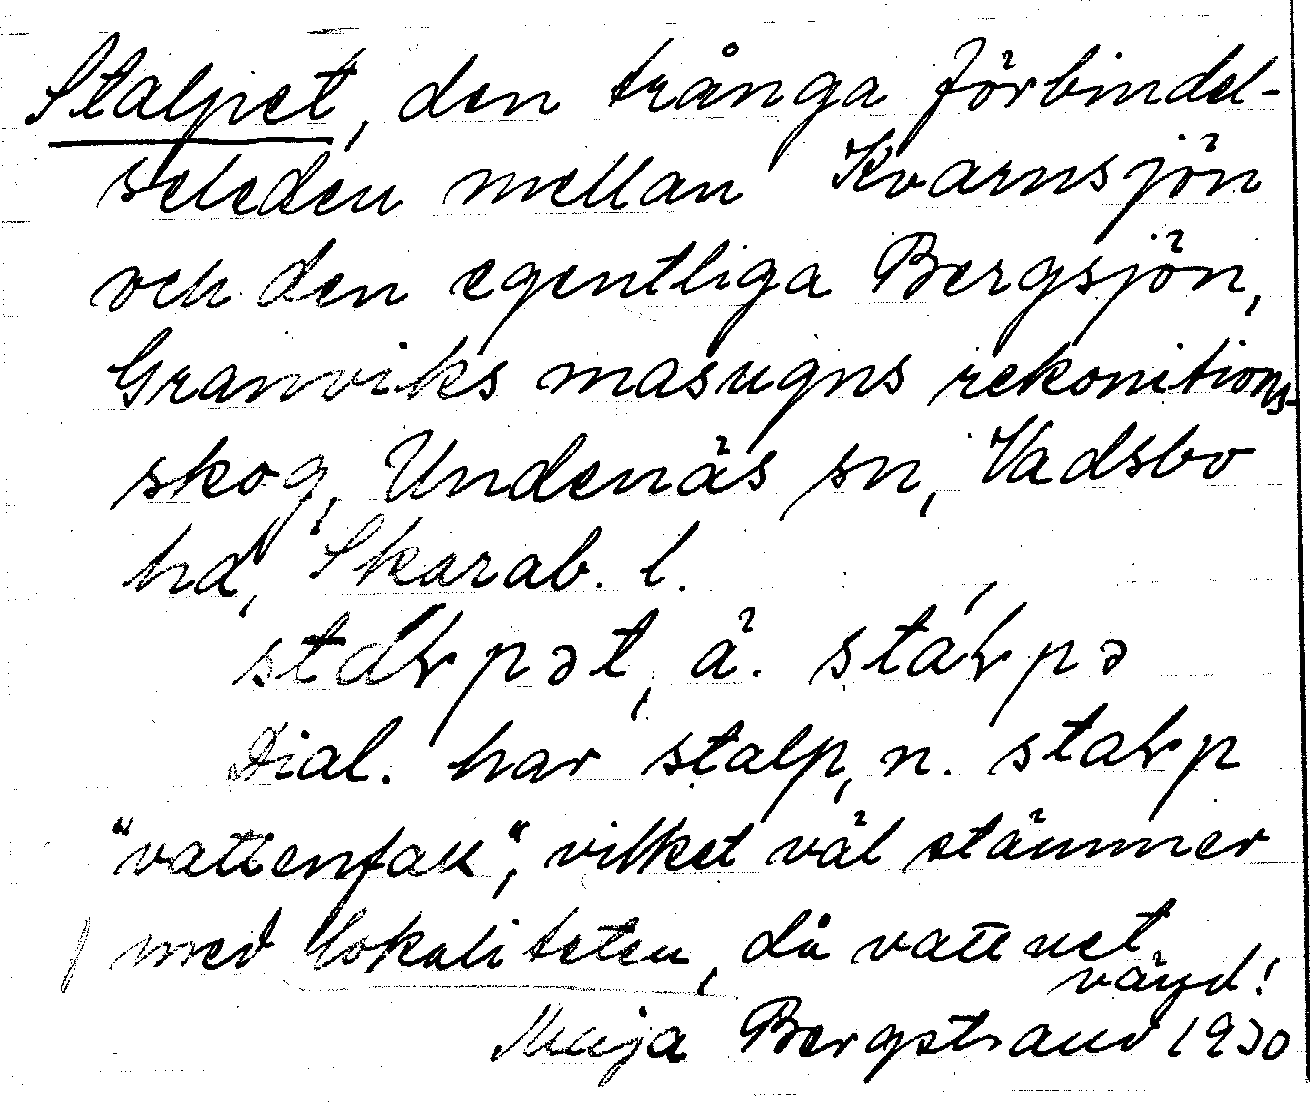 Stalpet, den trånga förbindel-
seleden mellan Kvarnsjön
och den egentliga Bergsjön,
Granviks masugns rekonitions-
skog, Undenäs sn, Vadsbo
hd, Skarab. l.
stáɽpət, ä. stáɽpə
Dial. har stalp, n. staɽp
"vattenfall", vilket väl stämmer
med lokaliteten, då vattnet
vänd!
Maja Bergstrand 1930